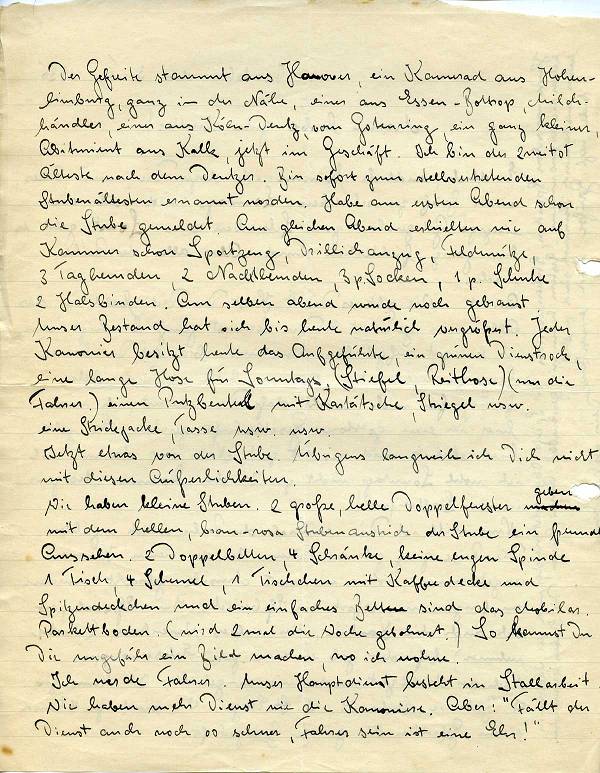 Der Gefreite stammt aus Hanover, ein Kamerad aus Hohen-
limburg, ganz in der Nähe, einer aus Essen-Bottrop, Milch-
händler, einer aus Köln-Deutz, vom Gotenring, ein ganz kleiner,
Abiturient aus Kalk, jetzt im Geschäft. Ich bin der zweitst
Älteste nach dem Deutzer. Bin sofort zum stellvertretenden
Stubenältesten ernannt worden. Habe am ersten Abend schon
die Stube gemeldet. Am gleichen Abend erhielten wir auf
Kammer schon Sportzeug, Drillichanzug, Feldmütze,
3 Taghemden, 2 Nachthemden, 3 p. Socken, 1 p. Schuhe
2 Halsbinden. Am selben abend wurde noch gebraust
Unser Bestand hat sich bis heute natürlich vergrößert. Jeder
Kanonier besitzt heute das Aufgeführte, ein grünen Dienstrock,
eine lange Hose für Sonntags, (Stiefel, Reithose) (nur die
Fahrer.) einen Putzbeutel mit Kartätsche, Striegel usw.
eine Strickjacke, Tasse usw. usw.
Jetzt etwas von der Stube. Übrigens langweile ich Dich nicht
mit diesen Äußerlichkeiten.
Wir haben kleine Stuben. 2 große, helle Doppelfenster geben
mit dem hellen, braun-rosa Stubenanstrich der Stube ein freund
Aussehen. 2 Doppelbetten, 4 Schränke, keine engen Spinde
1 Tisch, 4 Schemel, 1 Tischchen mit Kaffeedecke und
Spitzendeckchen und ein einfaches sind das Mobilar.
Parkettboden. (wird 2 mal die Woche gebohnert.) So kannst Du
Dir ungefähr ein Bild machen, wo ich wohne.
Ich werde Fahrer. Unser Hauptdienst besteht in Stallarbeit.
Wir haben mehr Dienst wie die Kanoniere. Aber: "Fällt der
Dienst auch noch so schwer, Fahrer sein ist eine Ehr!"